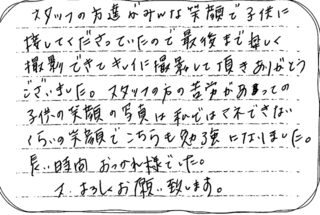 スタッフの方達がみんな笑顔で子供に
接してくださっていたので最後まで楽しく
撮影できてキレイに撮影して頂きありがとう
ございました。スタッフの方の苦労があっての
子供の笑顔の写真は私ではマネできない
くらいの笑顔でこちらも勉強になりました。
長い時間おつかれ様でした。
又、よろしくお願い致します。